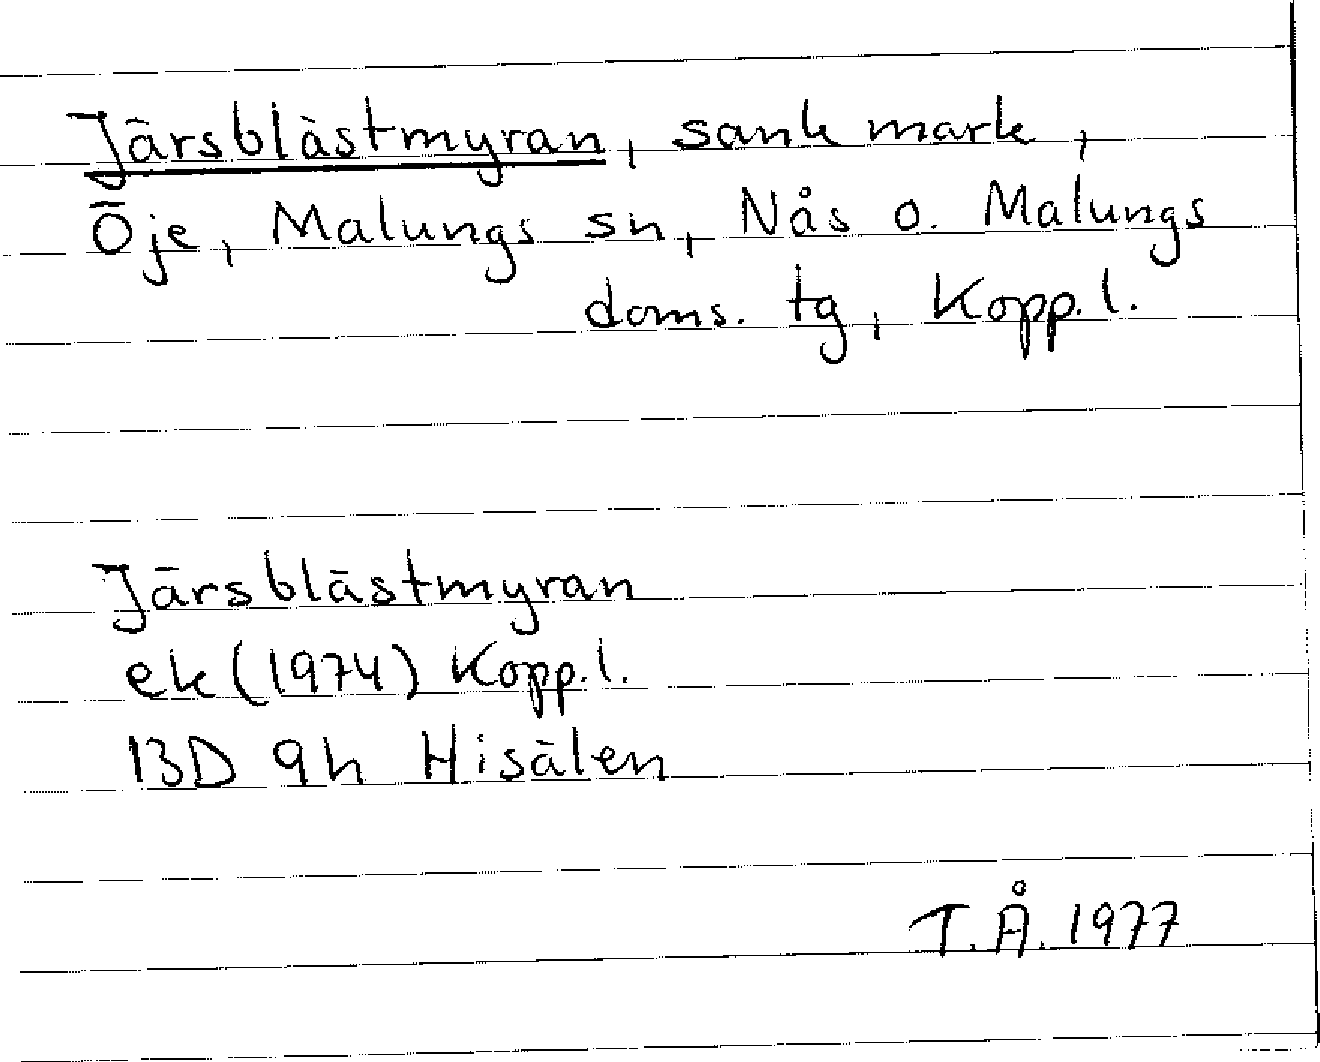 Järsblästmyran, sank mark,
Öje, Malungs sn, Nås o. Malungs
doms. tg, Kopp. l.
Järsblästmyran
ek (1974) Kopp. l.
13D 9h Hisälen
T.Å. 1977